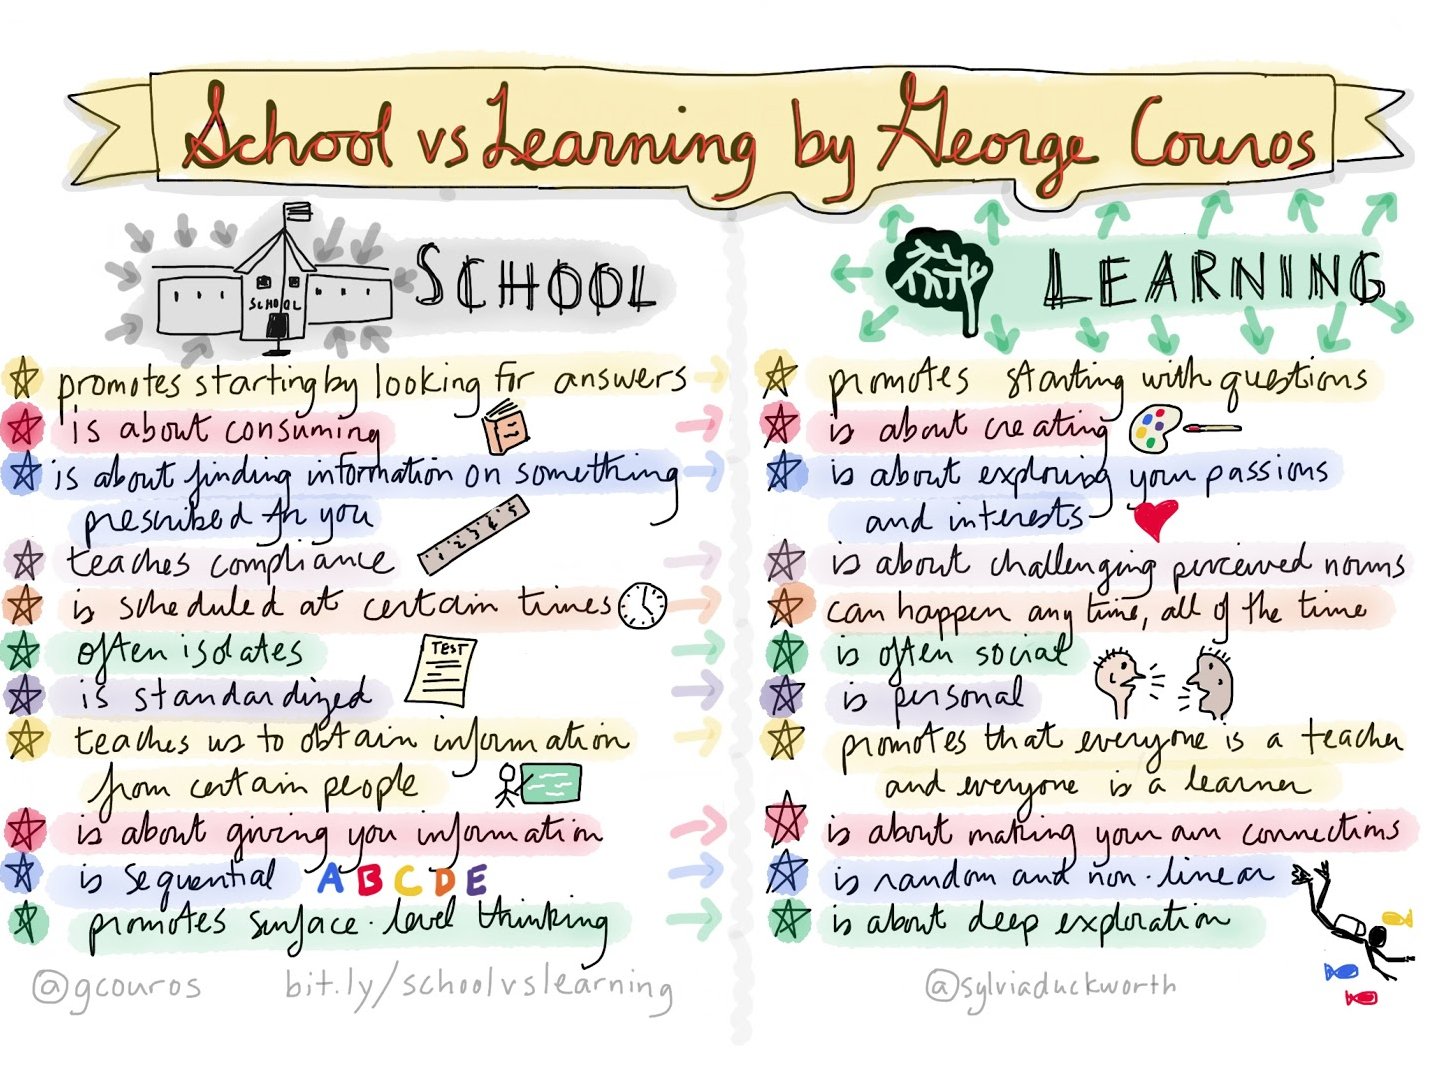 School vs Learning by George Couros
SCHOOL
SCHOOL
promotes starting by looking for answers
is about consuming
is about finding information on something
prescribed for you
1 2 3 4 5
teaches compliance
is scheduled at certain times
often isolates
TEST
is standardized
teaches us to obtain information
from certain people
is about giving you information
is sequential ABCDE
promotes surface-level thinking
@gcouros bit.ly/schoolvslearning
LEARNING
promotes starting with questions
is about creating
is about exploring your passions
and interests
is about challenging perceived norms
can happen any time, all of the time
is often social
is personal
promotes that everyone is a teacher
and everyone is a learner
is about making your own connections
is random and non-linear
is about deep exploration
@sylviaduckworth